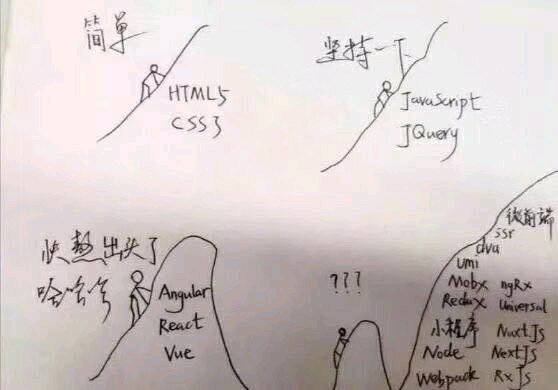 简单
HTML5
CSS3
坚持一下
JavaScript
JQuery
快熬出头了
哈哈哈
Angular
React
Vue
???
微前端
ssr
dva
umi
Mobx ngRx
Redux Universal
小程序 NuxtJs
Node NextJs
Webpack RxJs